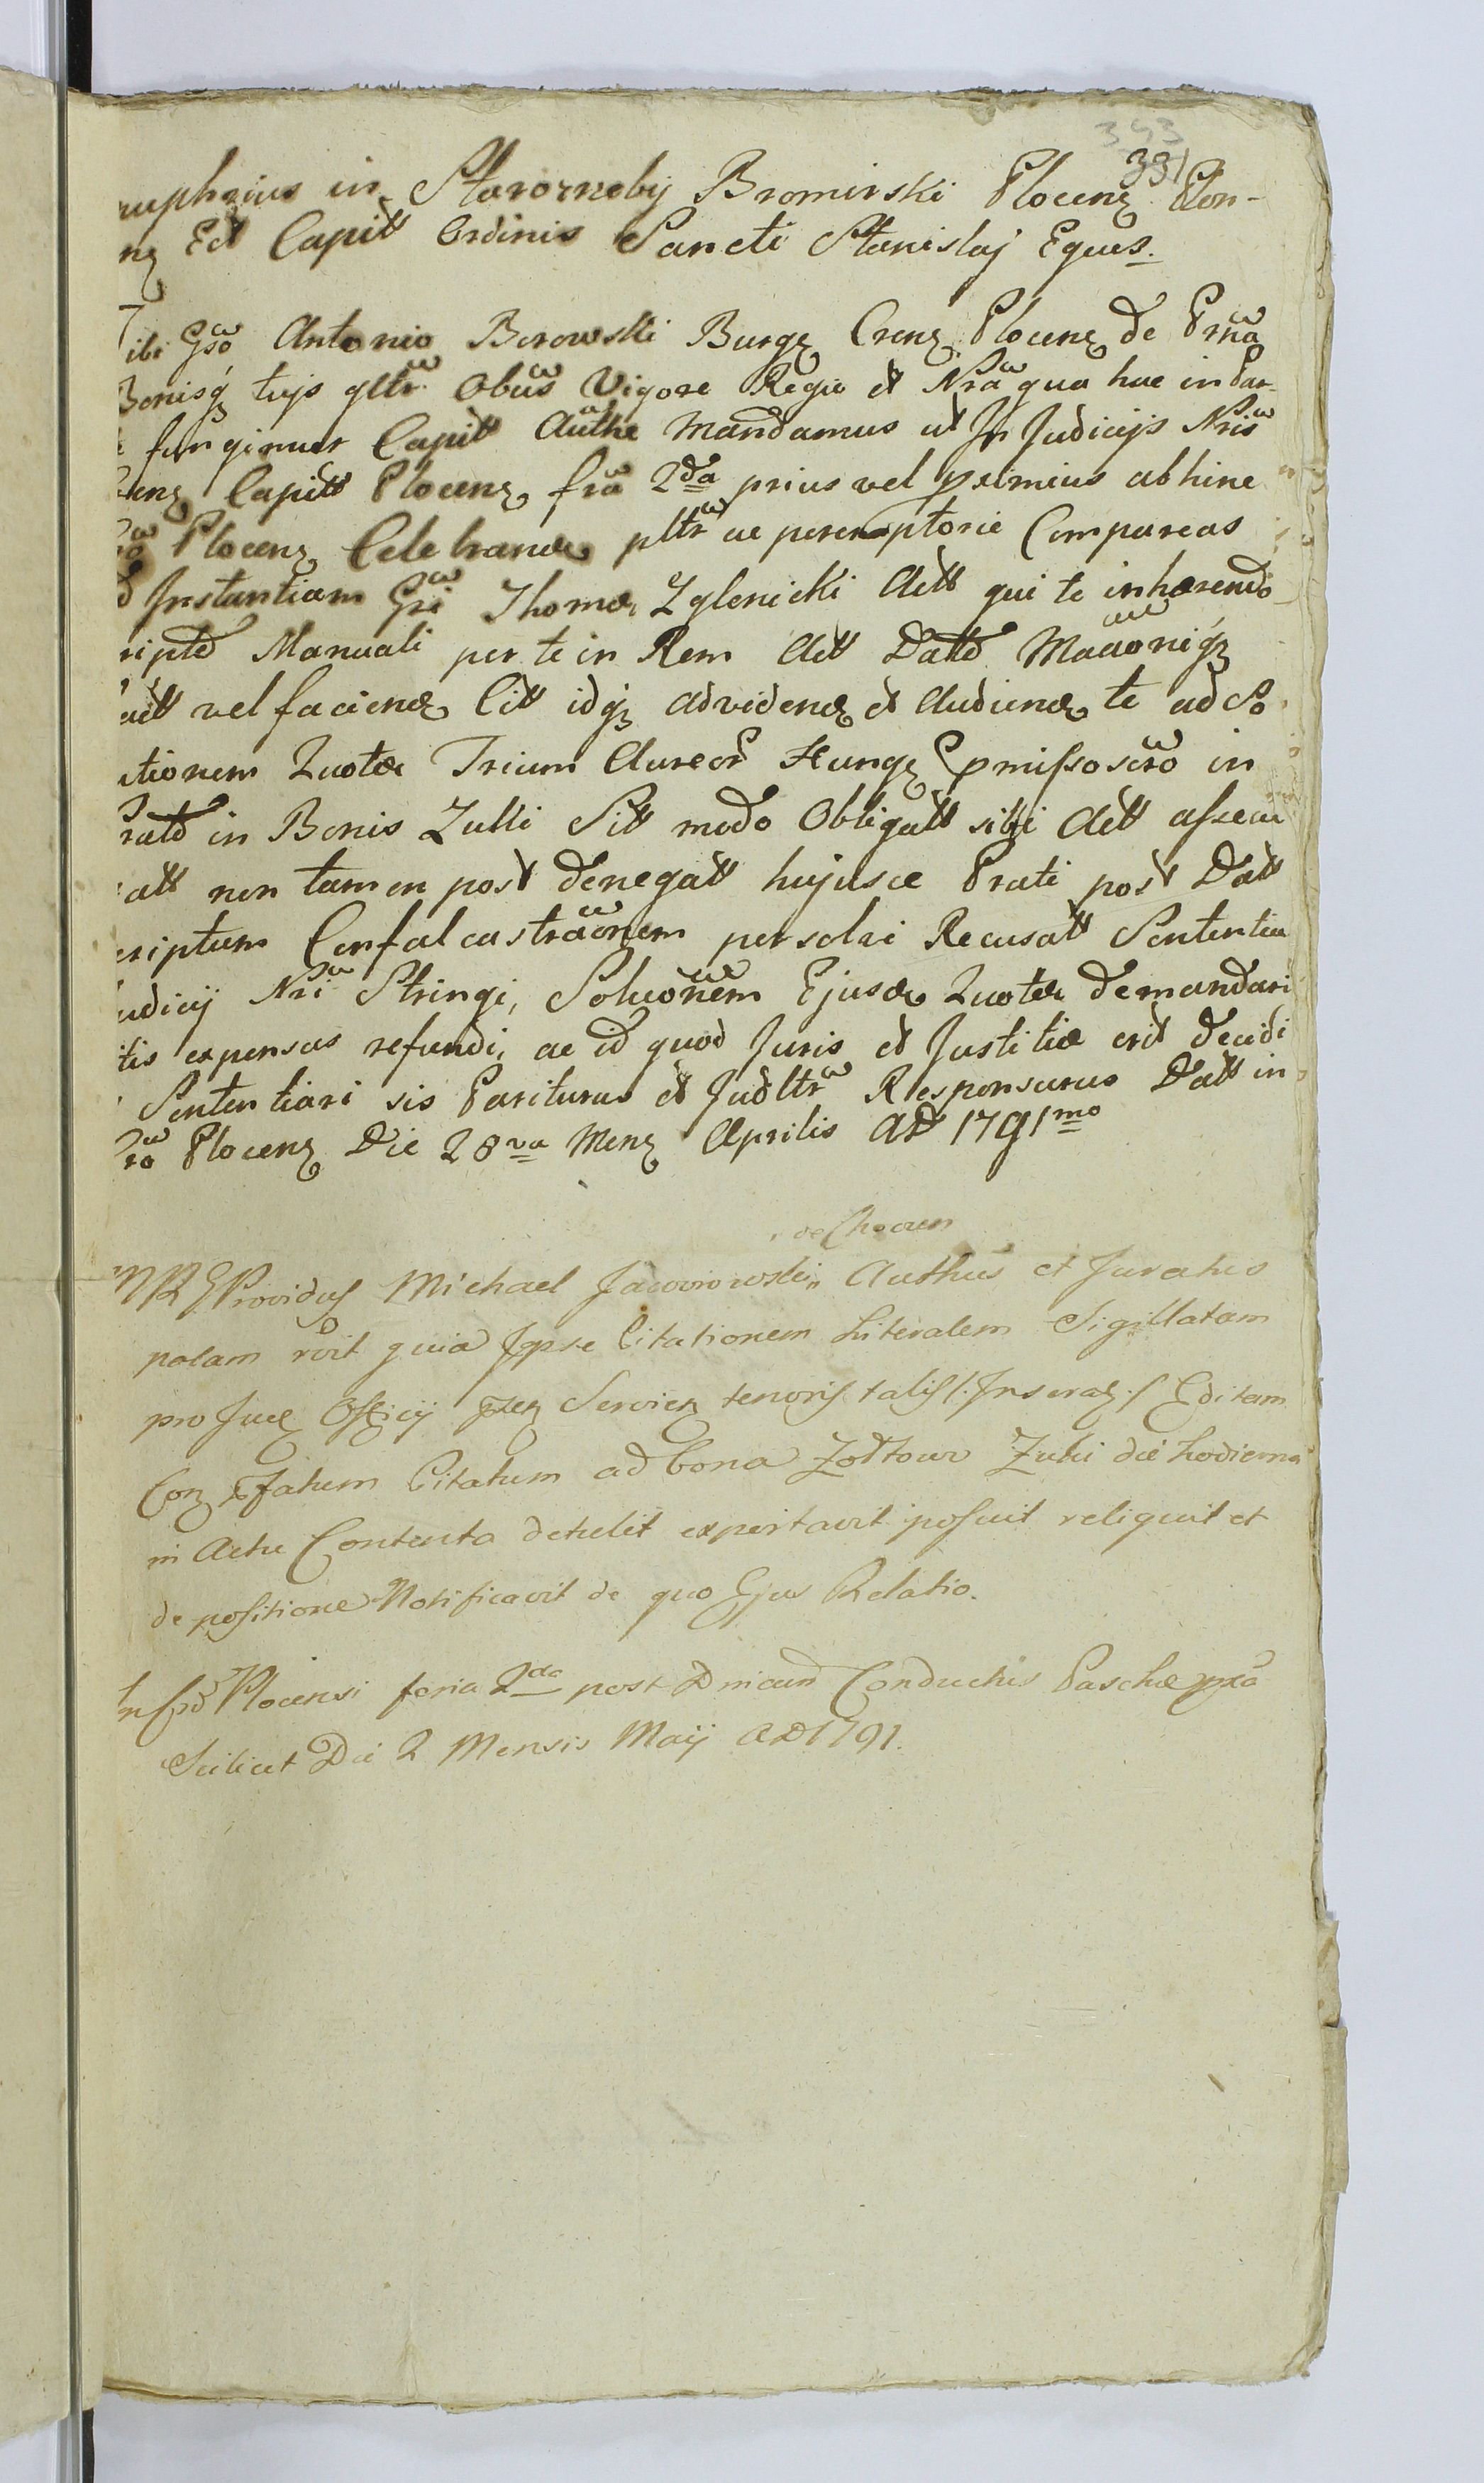 343
331
nuphrius in Starorzreby Bromirski Plocenz Plon-
nz Ect Capitt Ordinis Sancti Stanislaj Eques.
Tibi Gso Antonio Borowski Burgz Crenz Plocenz de Prna
Bonisqz tujs gltr Obus Vigore Regia et Nra qua hac in Par-
funginur Capit Authe Mandamus ut In Judicijs Nris
Capitt Plocenz fra 2da prius vel proximius abhinc
Plocenz Celebrandz pltr ac peremptorie Compareas
d Instantiam Gsi Thomæ Zglenicki Actt qui te inhærendo
ripto Manuali per te in Rem Actt Datto
actt vel faciendz Citt idqz ad videndz et Audiendz te ad So
utionem Quotæ Trium Aureor Hungz in
rato in Bonis Zulki Sitt modo Obligatt sibi Actt assecu
ratt non tamen post denegatt hujusce Prati post Datt
criptum Confalcastraonem persolvi Recusatt Sententia
udicij Nri Stringi, Soluonem Ejusdz Quotæ demandari
itis expensas refundi, ac id quod Juris et Justitiæ erit decidi
Sententiari sis Pariturus et Judltr Responsurus Datt in
ro Plocenz Die 28va Menz Aprilis AD 1791mo
de Chocun
Providus Michael Jaworowski Authus et Juratus
palam rvit quia Ipse Citationem Literalem Sigillatam
pro Jucz Officij Servien tenoris talis /: Inseratz :/ Editam
Con Citatum ad bona Zottowo Zulki die hodierna
in Actu Contenta detulit exportavit posuit reliquit et
de positione Notificavit de quo Ejus Relatio.
In Plocensi feria 2da post Dnicam Conductus Paschæ pxa
Scilicet Die 2 Mensis Maij AD 1791.